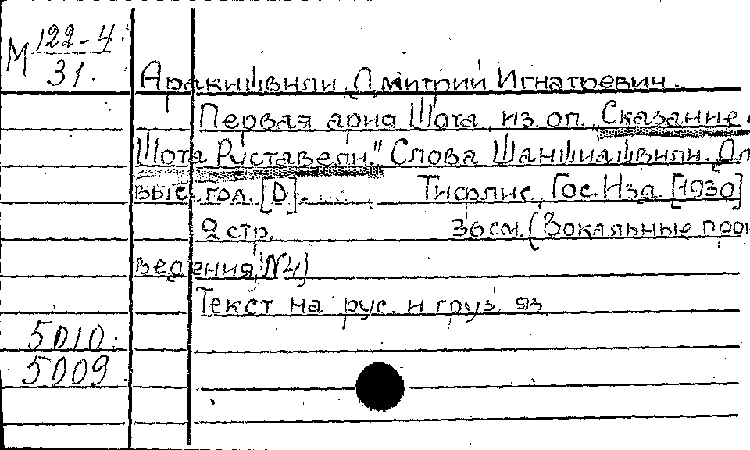 М 122-4
31.
Аракишвили, Дмитрий Игнатьевич.
Первая ария Шота из оп. Сказание
Шота Руставели." Слова Шаншиашвили. Дл
выс. гол. [D] Тифлис, Гос. Изд. [1930]
9 стр. 36 см. (Вокальные прои
ведения, №4)
Текст на рус. и груз. яз
5010.
5009